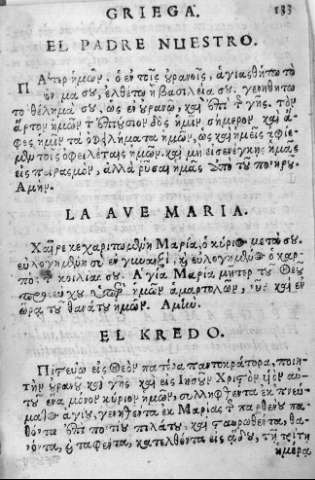 GRIEGA. 183
EL PADRE NUESTRO.
Πάτερ ἡμῶν, ὁ ἐν τοῖς ὐρανοῖς, ἁγιασθήτω τὸ
ὄνομα συ, ἐλθέτω ἡ βασιλεία συ. γενηθήτω
το θέλημα συ, ὡς ἐν ὐρανῶ, καὶ ἐπὶ τ γῆς. τὸν
ἄρτον ἡμῶν τ ἐπιύσιον δὸς ἡμῖν σήμερον καὶ ἄ-
φες ἡμῖν τὰ ὀφειλήματα ἡμῶν, ὡς καὶ ἡμεῖς ἀφίε-
μεν τοῖς ὀφειλέταις ἡμῶν. καὶ μη εἰσενέγκης ἡμᾶς
εἰς πειρασμὸν, ἀλλὰ ῥῦσαι ἡμᾶς ἀπὸ τῦ πονηρυ.
Αμήν.
LA AVE MARIA.
Χαῖρε κεχαριτωμένη Μαρία, ὁ κύριος μετά συ.
εὐλογημένη συ ἐν γυναιξὶ, καὶ εὐλογημένος ὁ καρ-
πὸς τ κοιλίας συ. Αγία Μαρία μῆτερ τῦ Θεῦ
προσεύχυ ὑπὲρ ἡμῶν ἁμαρτολῶν, νῦν καὶ ἐν
ώρα τῦ θανάτυ ἡμῶν. Αμήν.
EL KREDO.
Πιστεύω εἰς Θεὸν πατέρα παντοκράτορα, ποιη-
τὴν ὐρανῦ καὶ γῆς καὶ εἰς Ιησῦν Χριστὸν υἱὸν αὐ-
τῦ ἕνα μόνον κύριον ἡμῶν, συλληφθέντα ἐκ πνεύ-
ματος ἁγίυ, γεννηθέντα ἐκ Μαρίας τ παρθένυ πα-
θόντα ἐπὶ ποντίυ πιλάτυ, καὶ σταυρωθέντα, θα-
νόντα, καὶ ταφέντα, κατελθόντα εἰς ᾅδυ, τῆ τρίτη
ἡμέρα